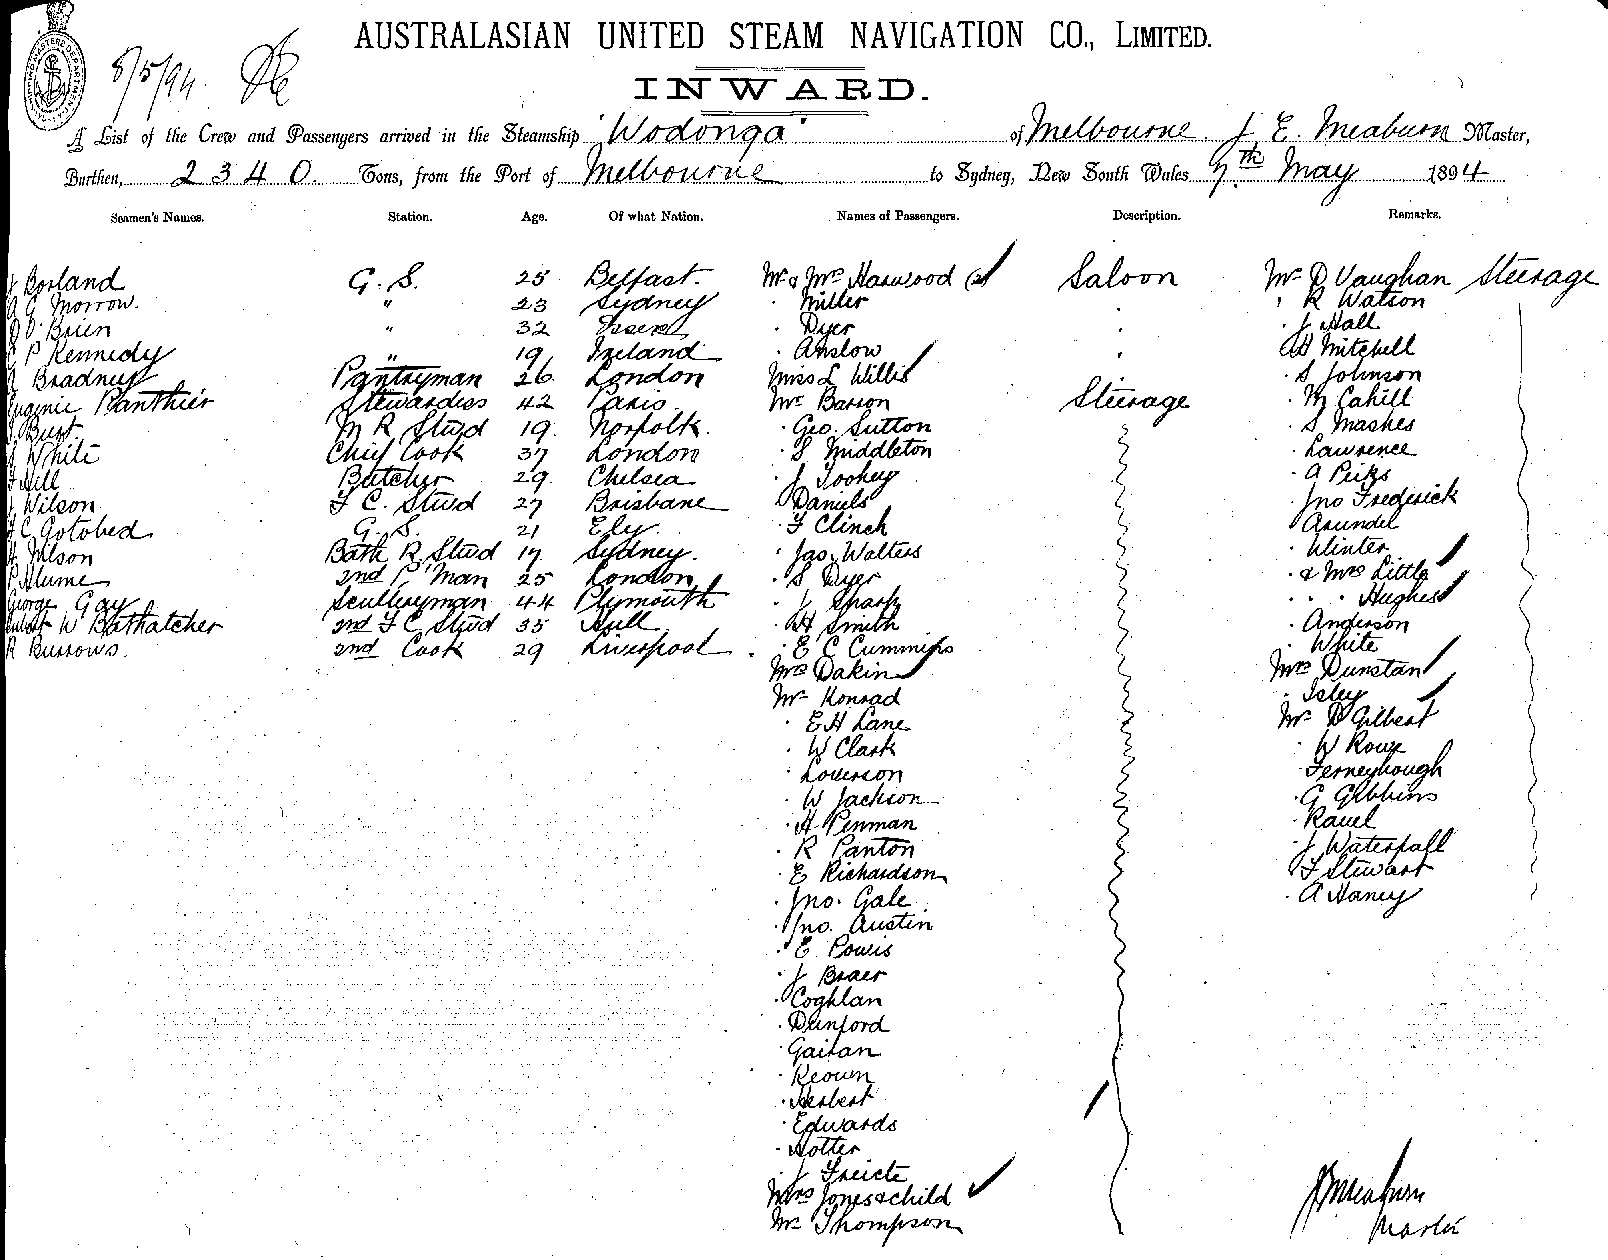 AUSTRALASIAN UNITED STEAM NAVIGATION CO., LIMITED.
8/5/94.
INWARD.
A List of the Crew and Passengers arrived in the Steamship "Wodonga" of Melbourne J. E. Meaburn Master,
Burthen, 2340. Tons, from the Port of Melbourne to Sydney, New South Wales 7th May 1894
Seamen's Names. Station. Age. Of what Nation. Names of Passengers. Description. Remarks.
Borland G. S. 25 Belfast. Mr & Mrs Harwood (2) Saloon Mr D Vaughan Steerage
A G Morrow. " 23 Sydney . Miller . . R Watson
O'Brien " 32 Essex . Dyer . . J Hall
P Kennedy " 19 Ireland . Anslow . AH Mitchell
Bradney Pantryman 26 London Miss L Willis . S Johnson
Eugenie Panthier Stewardess 42 Paris. Mr Barson Steerage . M Cahill
Burt M R Stwd 19. Norfolk. . Geo. Sutton . S Mashes
White Chief Cook 37 London . S Middleton . Lawrence
Hill Butcher 29. Chelsea . J Tookey . A Peiks
Wilson F C. Stwd 27 Brisbane . Daniels . Jno Frederick
C Gotobed G. S. 21 Ely. . F Clinch . Arundel
H Wilson Bath R Stwd 17 Sydney. . Jas. Walters . Winter
P Hume 2nd P'Man 25 London . S Dyer . & Mrs Little
George Gay Sculleryman 44 Plymouth . J Sharp . . . Hughes
W Bathatcher 2nd F C Stwd 35 Hull . H Smith . Anderson
R Burrows. 2nd Cook 29 Liverpool . E C Cummins . White
Mrs Dakin Mrs Dunstan
Mr Konrad . Isley
. E H Lane Mr D Gilbert
. W Clark . W Roux
. Loverson . Ferneyhough
. W Jackson . G Gibbins
. H Penman . Ravel
. R Panton . J Waterfall
. E Richardson . F Stewart
. Jno. Gale . A Haney
. Jno. Austin
. E Powis
. J Braer
. Coghlan
. Dunford
. Gaitan
. Keown
. Herbert
. Edwards
. Hotter
. J Freicte
Mrs Jones & child
Mr Thompson
J E Meaburn
Master